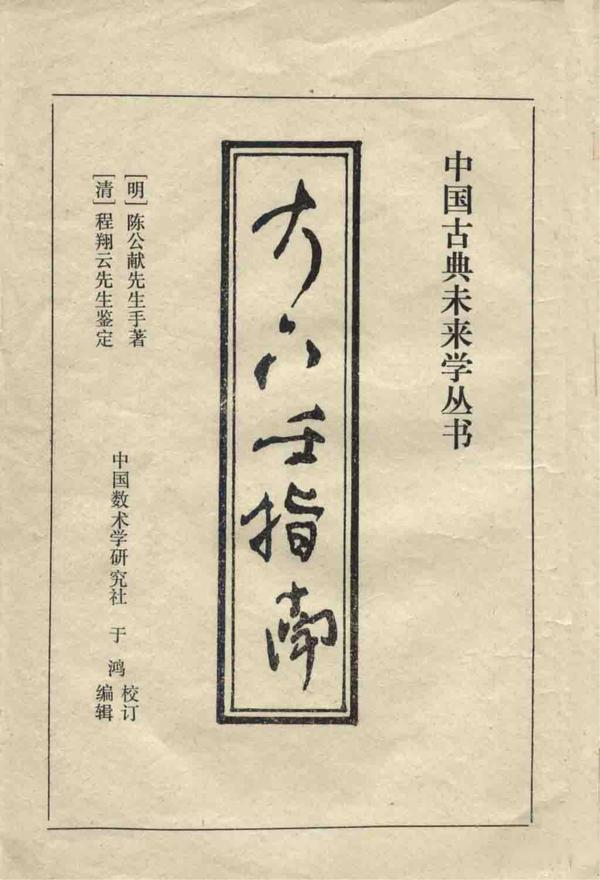 中国古典未来学丛书
大六壬指南
[明]陈公献先生手著
[清]程翔云先生鉴定
中国数术学研究社 于鸿 校订
编辑